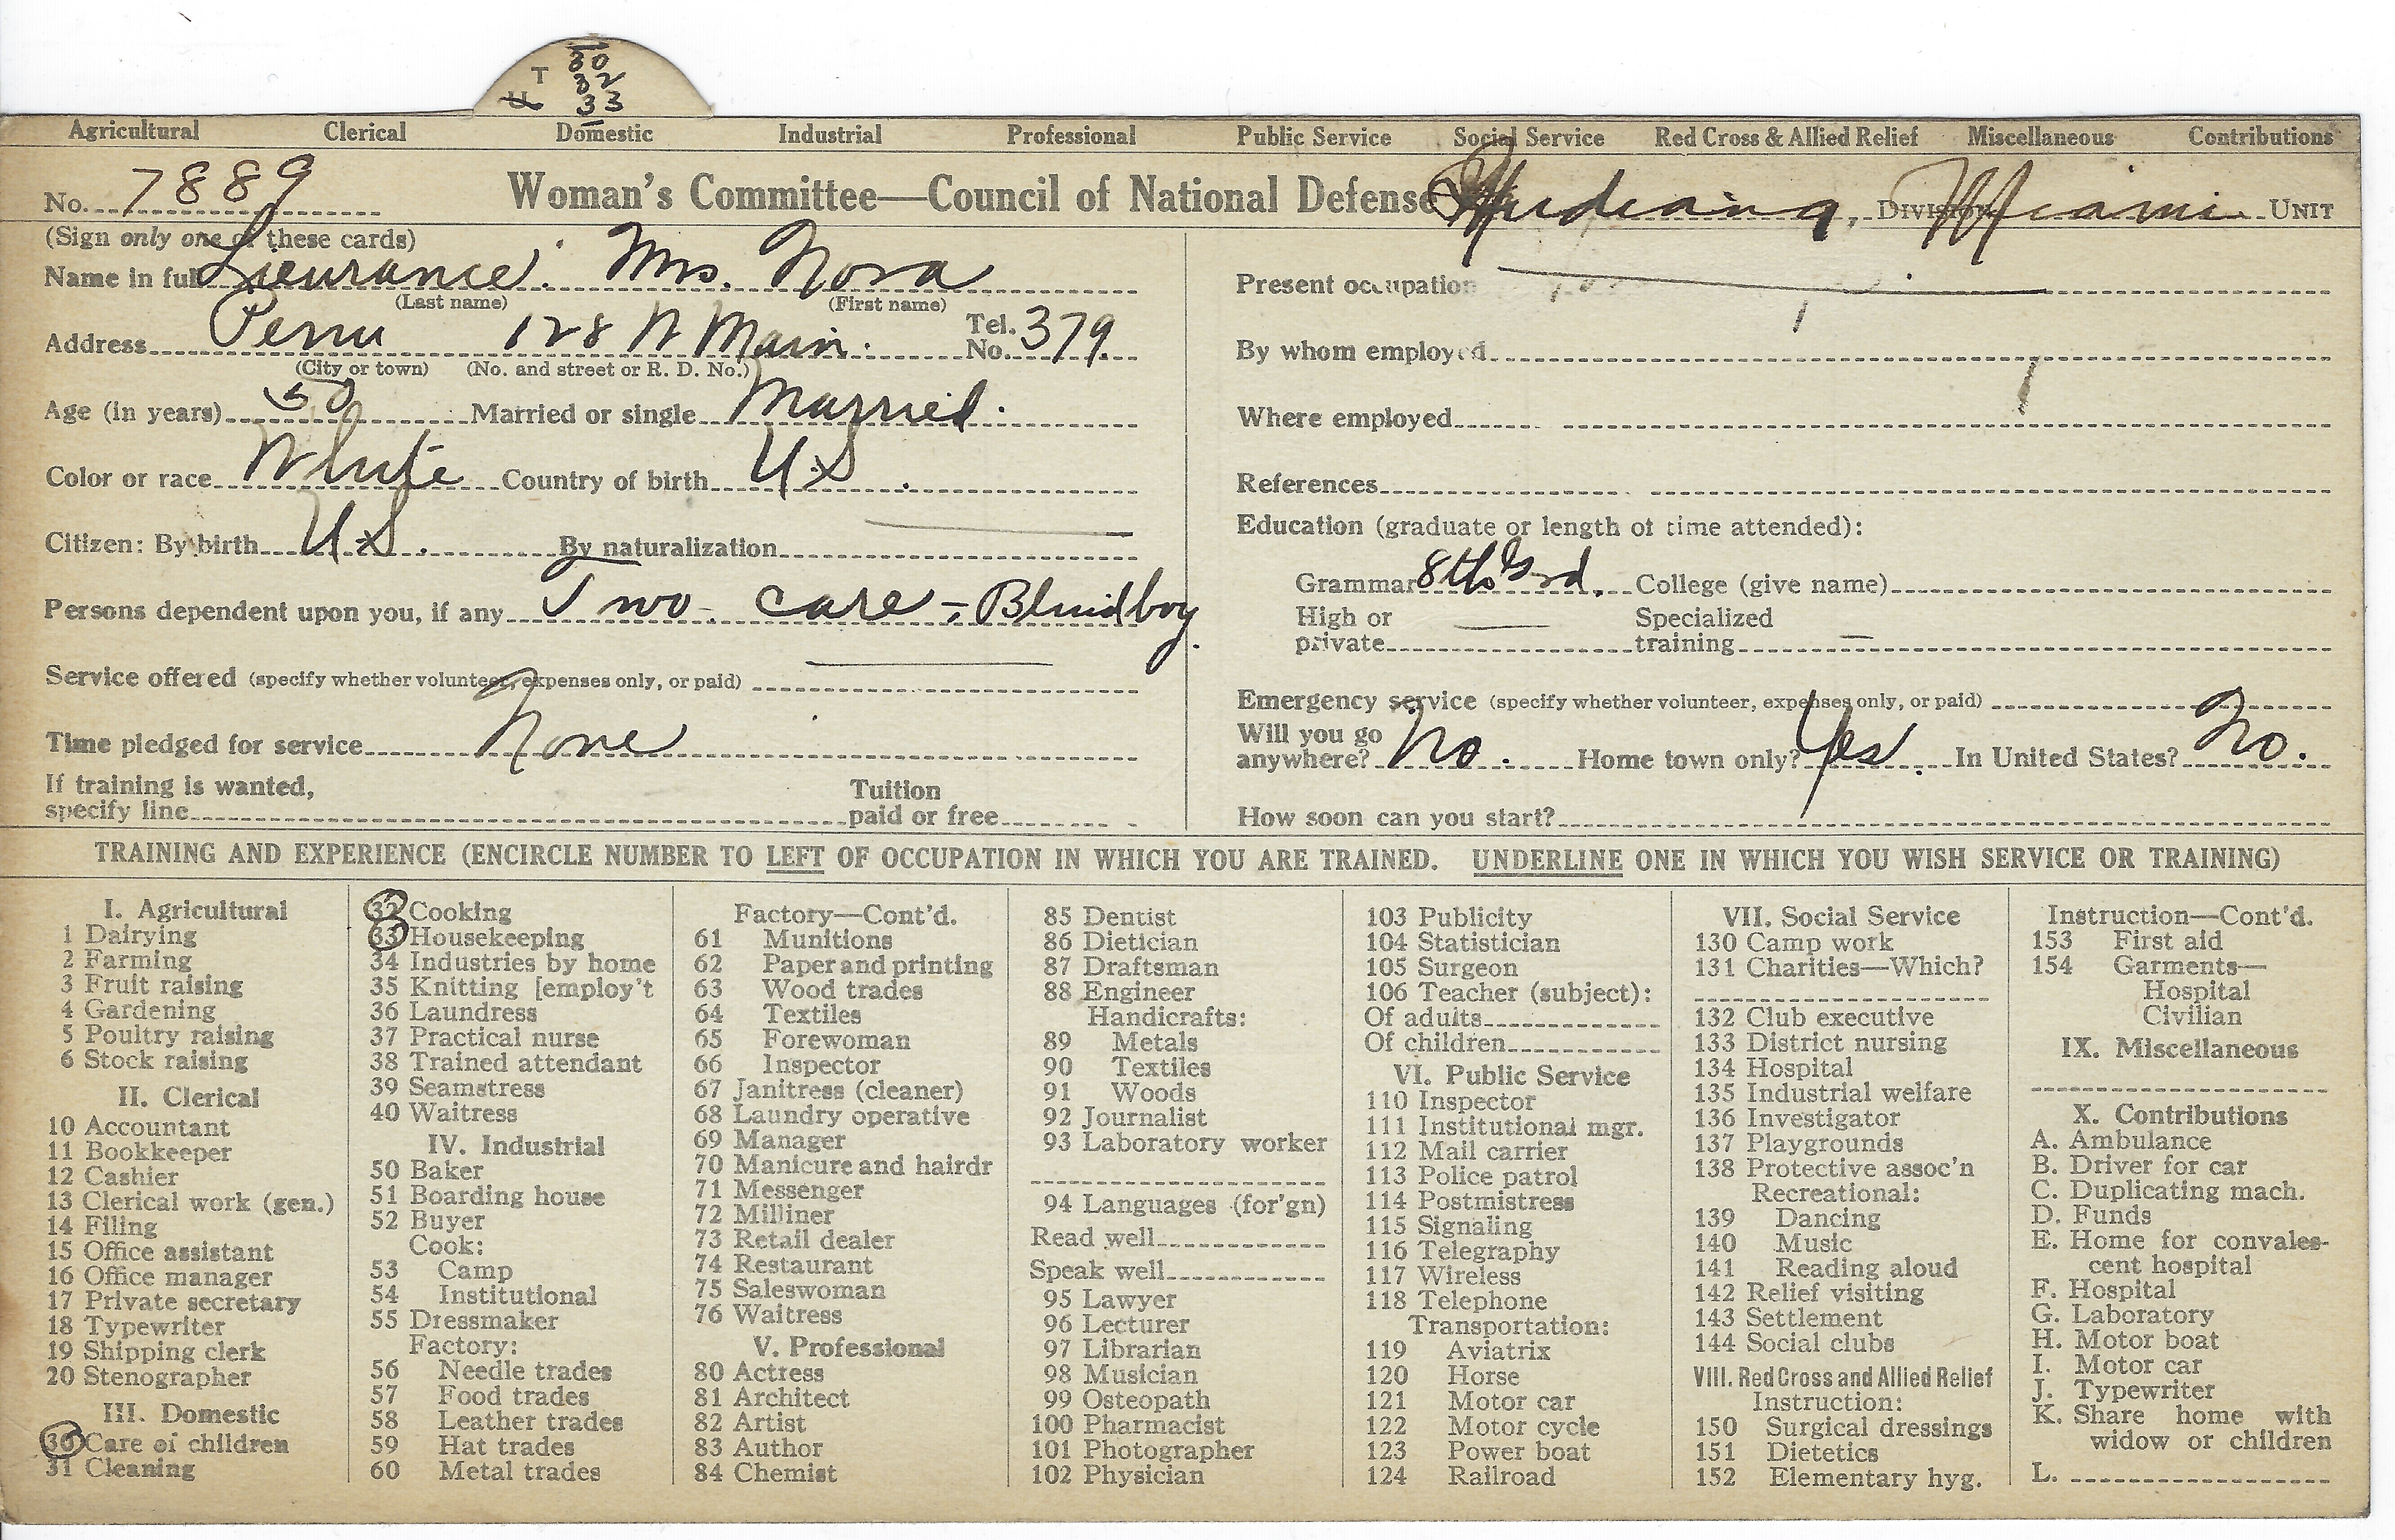 T 30
32
U 33
Agricultural Clerical Domestic Industrial Professional Public Service Social Service Red Cross & Allied Relief Miscellaneous Contributions
No. 7889 Woman's Committee—Council of National Defense Indiana, DIVISION Miami UNIT
(Sign only one of these cards)
Name in full Lieurance. Mrs. Nora
(Last name) (First name)
Address Peru 128 N Main. Tel. No. 379
(City or town) (No. and street or R. D. No.)
Age (in years) 50 Married or single Married.
Color or race White Country of birth U.S.
Citizen: By birth U.S. By naturalization
Persons dependent upon you, if any Two - care - Blind boy.
Service offered (specify whether volunteer, expenses only, or paid)
Time pledged for service None
If training is wanted, specify line Tuition paid or free
Present occupation
By whom employed
Where employed
References
Education (graduate or length of time attended):
Grammar 8th Grd. College (give name)
High or private — Specialized training —
Emergency service (specify whether volunteer, expenses only, or paid)
Will you go anywhere? No. Home town only? Yes. In United States? No.
How soon can you start?
TRAINING AND EXPERIENCE (ENCIRCLE NUMBER TO LEFT OF OCCUPATION IN WHICH YOU ARE TRAINED. UNDERLINE ONE IN WHICH YOU WISH SERVICE OR TRAINING)
I. Agricultural
1 Dairying
2 Farming
3 Fruit raising
4 Gardening
5 Poultry raising
6 Stock raising
II. Clerical
10 Accountant
11 Bookkeeper
12 Cashier
13 Clerical work (gen.)
14 Filing
15 Office assistant
16 Office manager
17 Private secretary
18 Typewriter
19 Shipping clerk
20 Stenographer
III. Domestic
30 Care of children
31 Cleaning
32 Cooking
33 Housekeeping
34 Industries by home
35 Knitting [employ't
36 Laundress
37 Practical nurse
38 Trained attendant
39 Seamstress
40 Waitress
IV. Industrial
50 Baker
51 Boarding house
52 Buyer
Cook:
53 Camp
54 Institutional
55 Dressmaker
Factory:
56 Needle trades
57 Food trades
58 Leather trades
59 Hat trades
60 Metal trades
Factory—Cont'd.
61 Munitions
62 Paper and printing
63 Wood trades
64 Textiles
65 Forewoman
66 Inspector
67 Janitress (cleaner)
68 Laundry operative
69 Manager
70 Manicure and hairdr
71 Messenger
72 Milliner
73 Retail dealer
74 Restaurant
75 Saleswoman
76 Waitress
V. Professional
80 Actress
81 Architect
82 Artist
83 Author
84 Chemist
85 Dentist
86 Dietician
87 Draftsman
88 Engineer
Handicrafts:
89 Metals
90 Textiles
91 Woods
92 Journalist
93 Laboratory worker
94 Languages (for'gn)
Read well
Speak well
95 Lawyer
96 Lecturer
97 Librarian
98 Musician
99 Osteopath
100 Pharmacist
101 Photographer
102 Physician
103 Publicity
104 Statistician
105 Surgeon
106 Teacher (subject):
Of adults
Of children
VI. Public Service
110 Inspector
111 Institutional mgr.
112 Mail carrier
113 Police patrol
114 Postmistress
115 Signaling
116 Telegraphy
117 Wireless
118 Telephone
Transportation:
119 Aviatrix
120 Horse
121 Motor car
122 Motor cycle
123 Power boat
124 Railroad
VII. Social Service
130 Camp work
131 Charities—Which?
132 Club executive
133 District nursing
134 Hospital
135 Industrial welfare
136 Investigator
137 Playgrounds
138 Protective assoc'n
Recreational:
139 Dancing
140 Music
141 Reading aloud
142 Relief visiting
143 Settlement
144 Social clubs
VIII. Red Cross and Allied Relief
Instruction:
150 Surgical dressings
151 Dietetics
152 Elementary hyg.
Instruction—Cont'd.
153 First aid
154 Garments—
Hospital
Civilian
IX. Miscellaneous
X. Contributions
A. Ambulance
B. Driver for car
C. Duplicating mach.
D. Funds
E. Home for convales-
cent hospital
F. Hospital
G. Laboratory
H. Motor boat
I. Motor car
J. Typewriter
K. Share home with
widow or children
L.